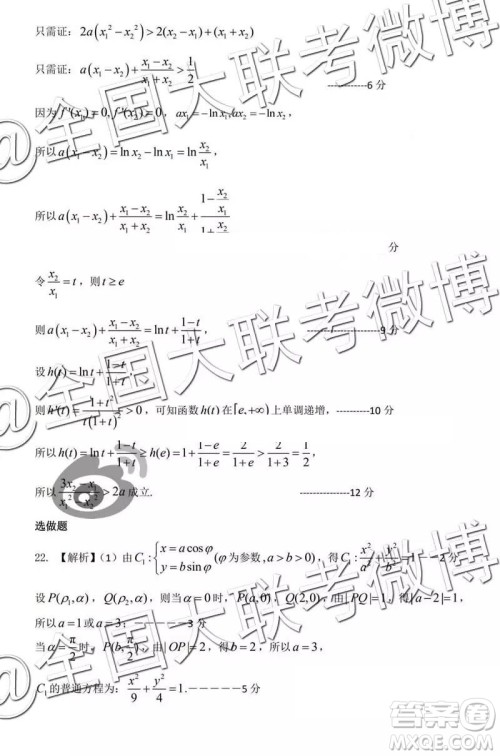 只需证：2a(x₁²−x₂²)>2(x₂−x₁)+(x₁−x₂)
只需证：a(x₁−x₂)+\frac{x₁−x₂}{x₁+x₂}>\frac{1}{2} -----------6 分
因为 f'(x₁)=0, f'(x₂)=0，ax₁=−ln x₁, ax₂=−ln x₂，
所以 a(x₁−x₂)=ln x₂−ln x₁=ln\frac{x₂}{x₁}，
所以 a(x₁−x₂)+\frac{x₁−x₂}{x₁+x₂}=ln\frac{x₂}{x₁}+\frac{1−\frac{x₂}{x₁}}
分
令\frac{x₂}{x₁}=t，则 t≥e
则 a(x₁−x₂)+\frac{x₁−x₂}{x₁+x₂}=ln t+\frac{1−t}{1+t}， -----------9 分
设 h(t)=ln t+\frac{1−t}{1+t}
则 h'(t)=\frac{1+t²}{t(1+t)²}>0，可知函数 h(t) 在[e,+∞)上单调递增，---------10 分
所以 h(t)=ln t+\frac{1−t}{1+t}≥h(e)=1+\frac{1−e}{1+e}=\frac{2}{1+e}>\frac{2}{1+3}=\frac{1}{2}，
所以\frac{3x₂−x₁}{x₁²−x₂²}>2a 成立. -----------12 分
选做题
22. 【解析】（1）由 C₁:{x=a cosφ y=b sinφ (φ为参数,a>b>0)，得 C₁:\frac{x²}{a²}+\frac{y²}{b²}=1 ——2 分
设 P(ρ₁,α)，Q(ρ₂,α)，则当 α=0 时，P(a,0)，Q(2,0)，由|PQ|=1，得|a−2|=1，
所以 a=1或a=3，-————3 分
当 α=\frac{π}{2} 时，P(b,\frac{π}{2})，由|OP|=2，得 b=2，所以 a=3，
C₁的普通方程为：\frac{x²}{9}+\frac{y²}{4}=1.-————5 分
@全国大联考微博
@全国大联考微博
答案圈
MXQE.COM